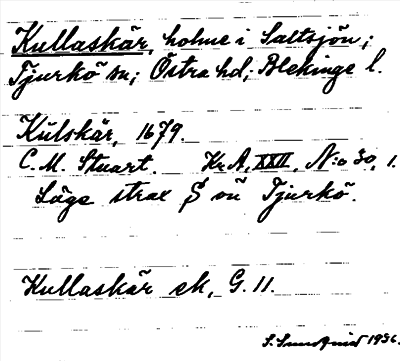 Kullaskär, holme i Saltsjön;
Tjurkö sn; Östra hd; Blekinge l.
Kulskär, 1679.
C. M. Stuart. Kr A, XXII, N:o 30, 1.
Läge strax S om Tjurkö.
Kullaskär ek, G. 11.
S. 1936.